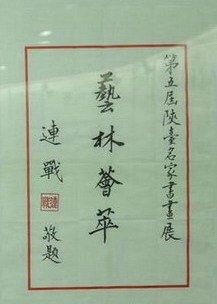 第五屆陝臺名家書畫展
藝林薈萃
連戰
敬題